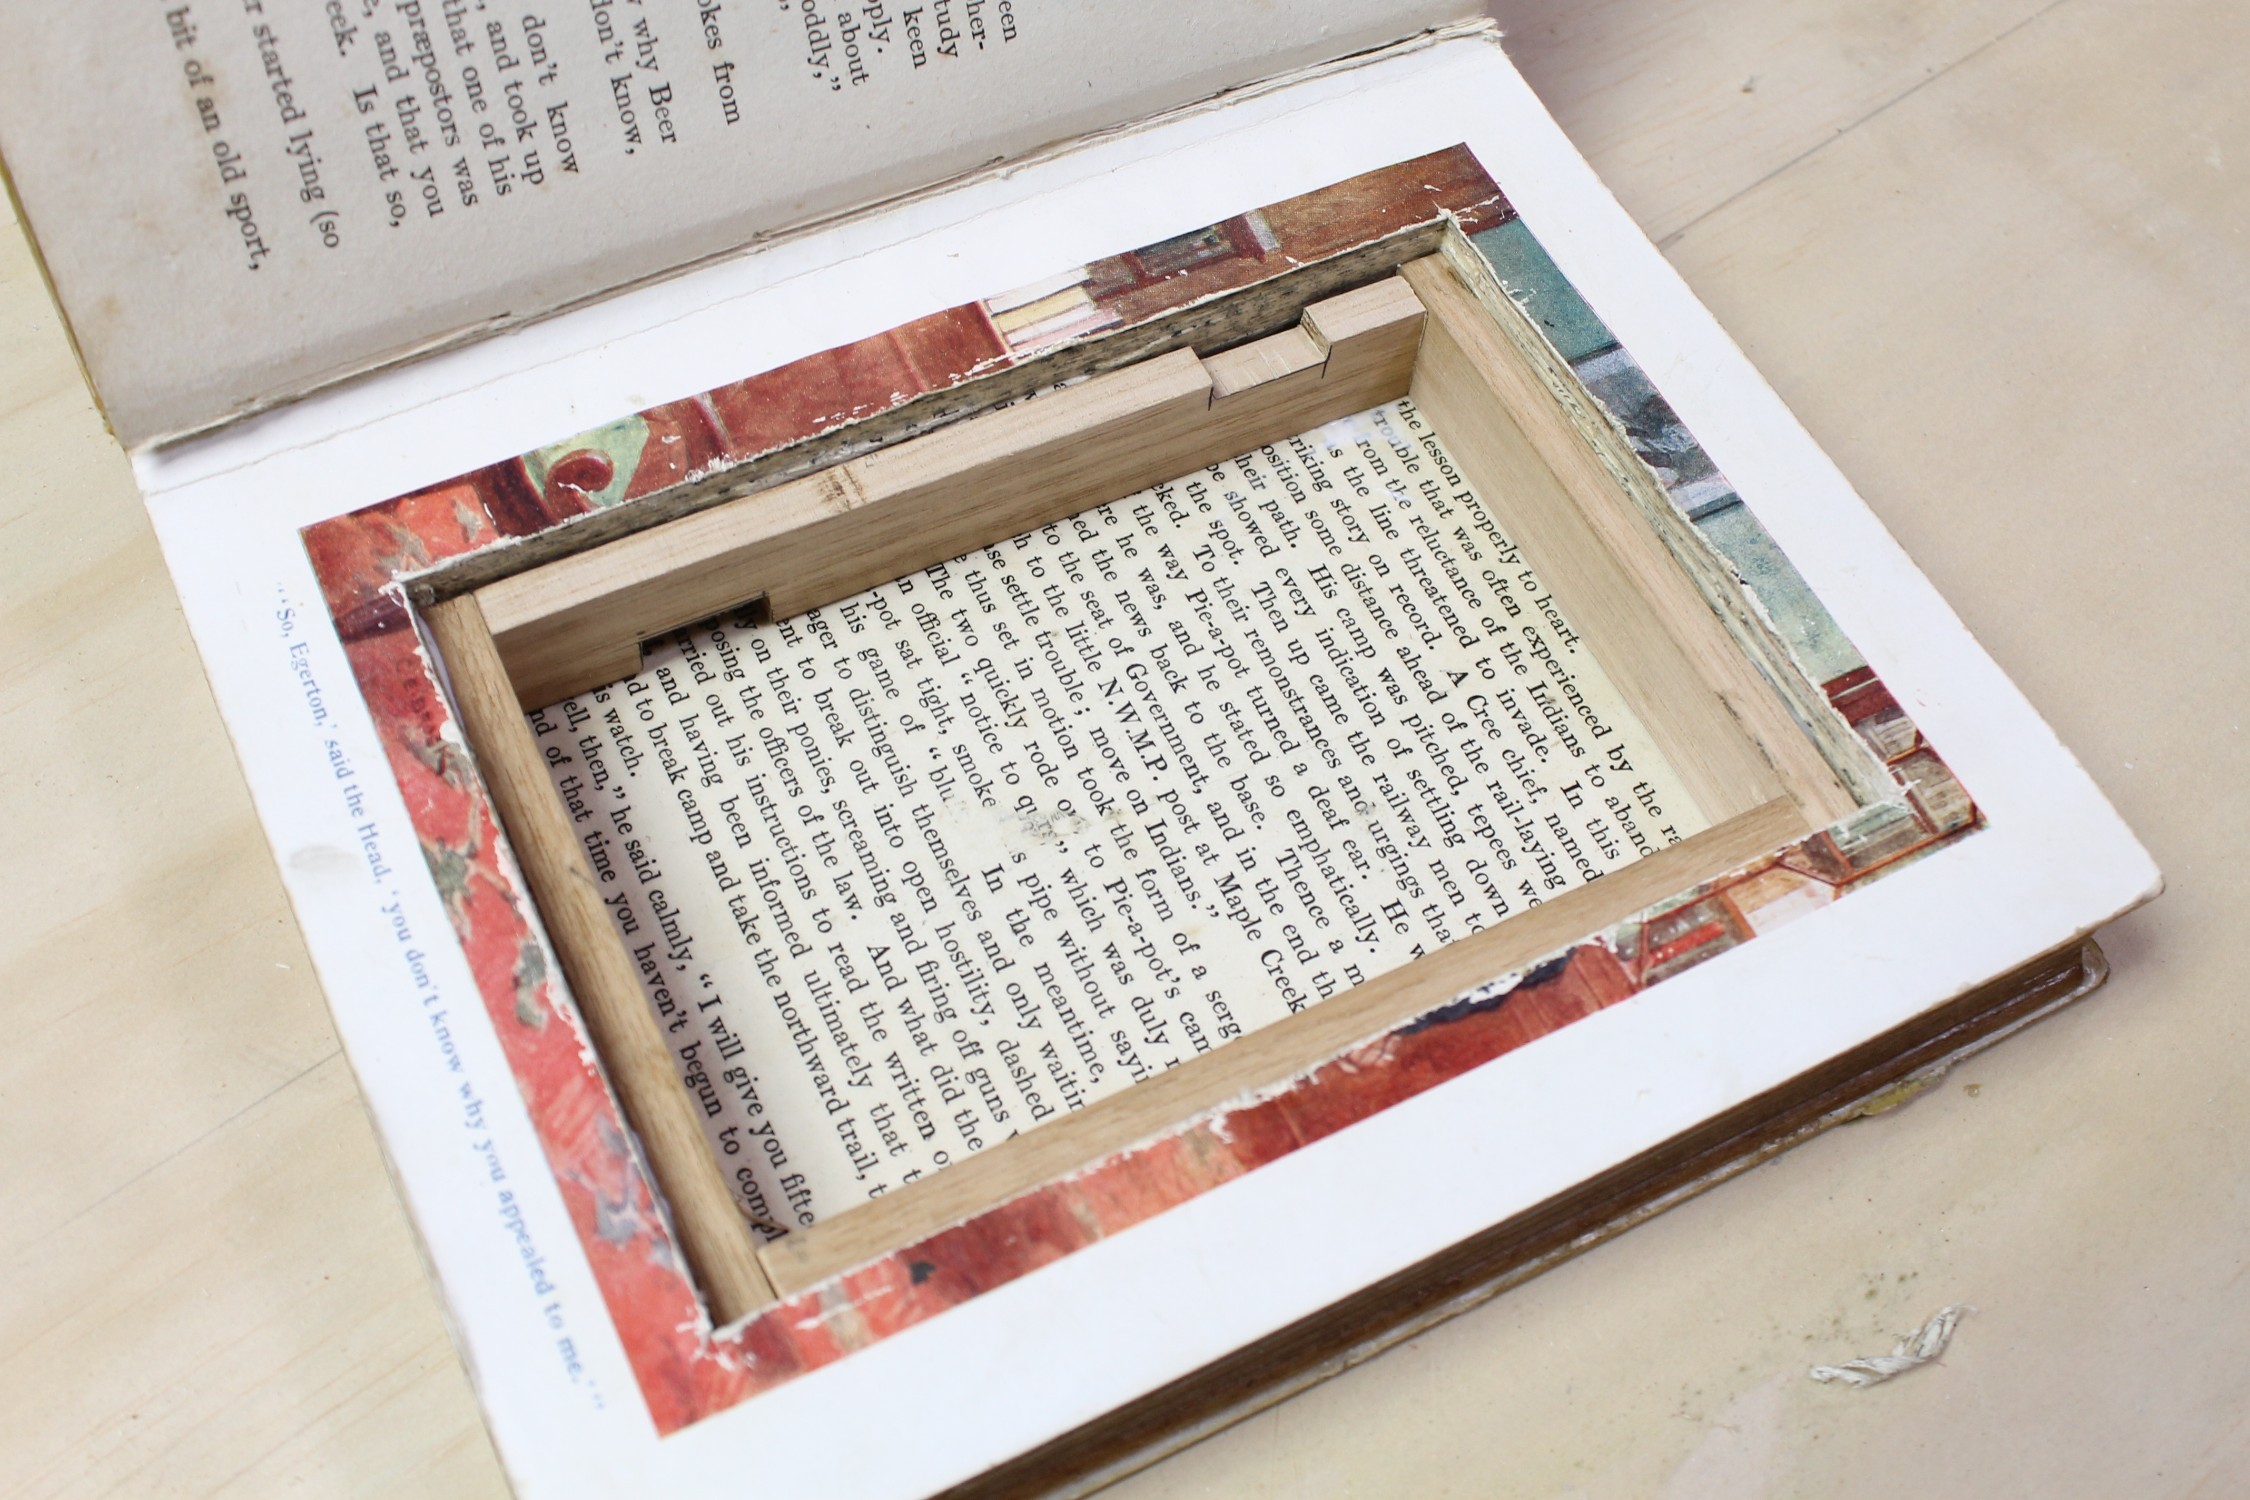 een
her-
tudy
keen
pply.
about
oddly,”
okes from
why Beer
don't know,
don't know
, and took up
that one of his
præpostors was
e, and that you
eek. Is that so,
r started lying (so
bit of an old sport,
the lesson properly to heart.
trouble that was often experienced by the ra
rom the reluctance of the Indians to aband
s the line threatened to invade. In this
riking story on record. A Cree chief, named
osition some distance ahead of the rail-laying
heir path. His camp was pitched, tepees we
be showed every indication of settling down
the spot. Then up came the railway men to
cked. To their remonstrances and urgings tha
the way Pie-a-pot turned a deaf ear. He w
re he was, and he stated so emphatically.
ned the news back to the base. Thence a m
to the seat of Government, and in the end th
h to the little N.W.M.P. post at Maple Creek
ase settle trouble ; move on Indians.”
e thus set in motion took the form of a serg
The two quickly rode to Pie-a-pot's cam
n official “notice to which was duly r
-pot sat tight, smoke s pipe without sayi
his game of “blu In the meantime,
ager to distinguish themselves and only waitin
ent to break out into open hostility, dashed
y on their ponies, screaming and firing off guns
posing the officers of the law. And what did the
rried out his instructions to read the written o
and having been informed ultimately that t
d to break camp and take the northward trail, t
is watch.
ell, then,” he said calmly, “I will give you fifte
nd of that time you haven't begun to compl
“‘So, Egerton,’ said the Head, ‘you don't know why you appealed to me.’”